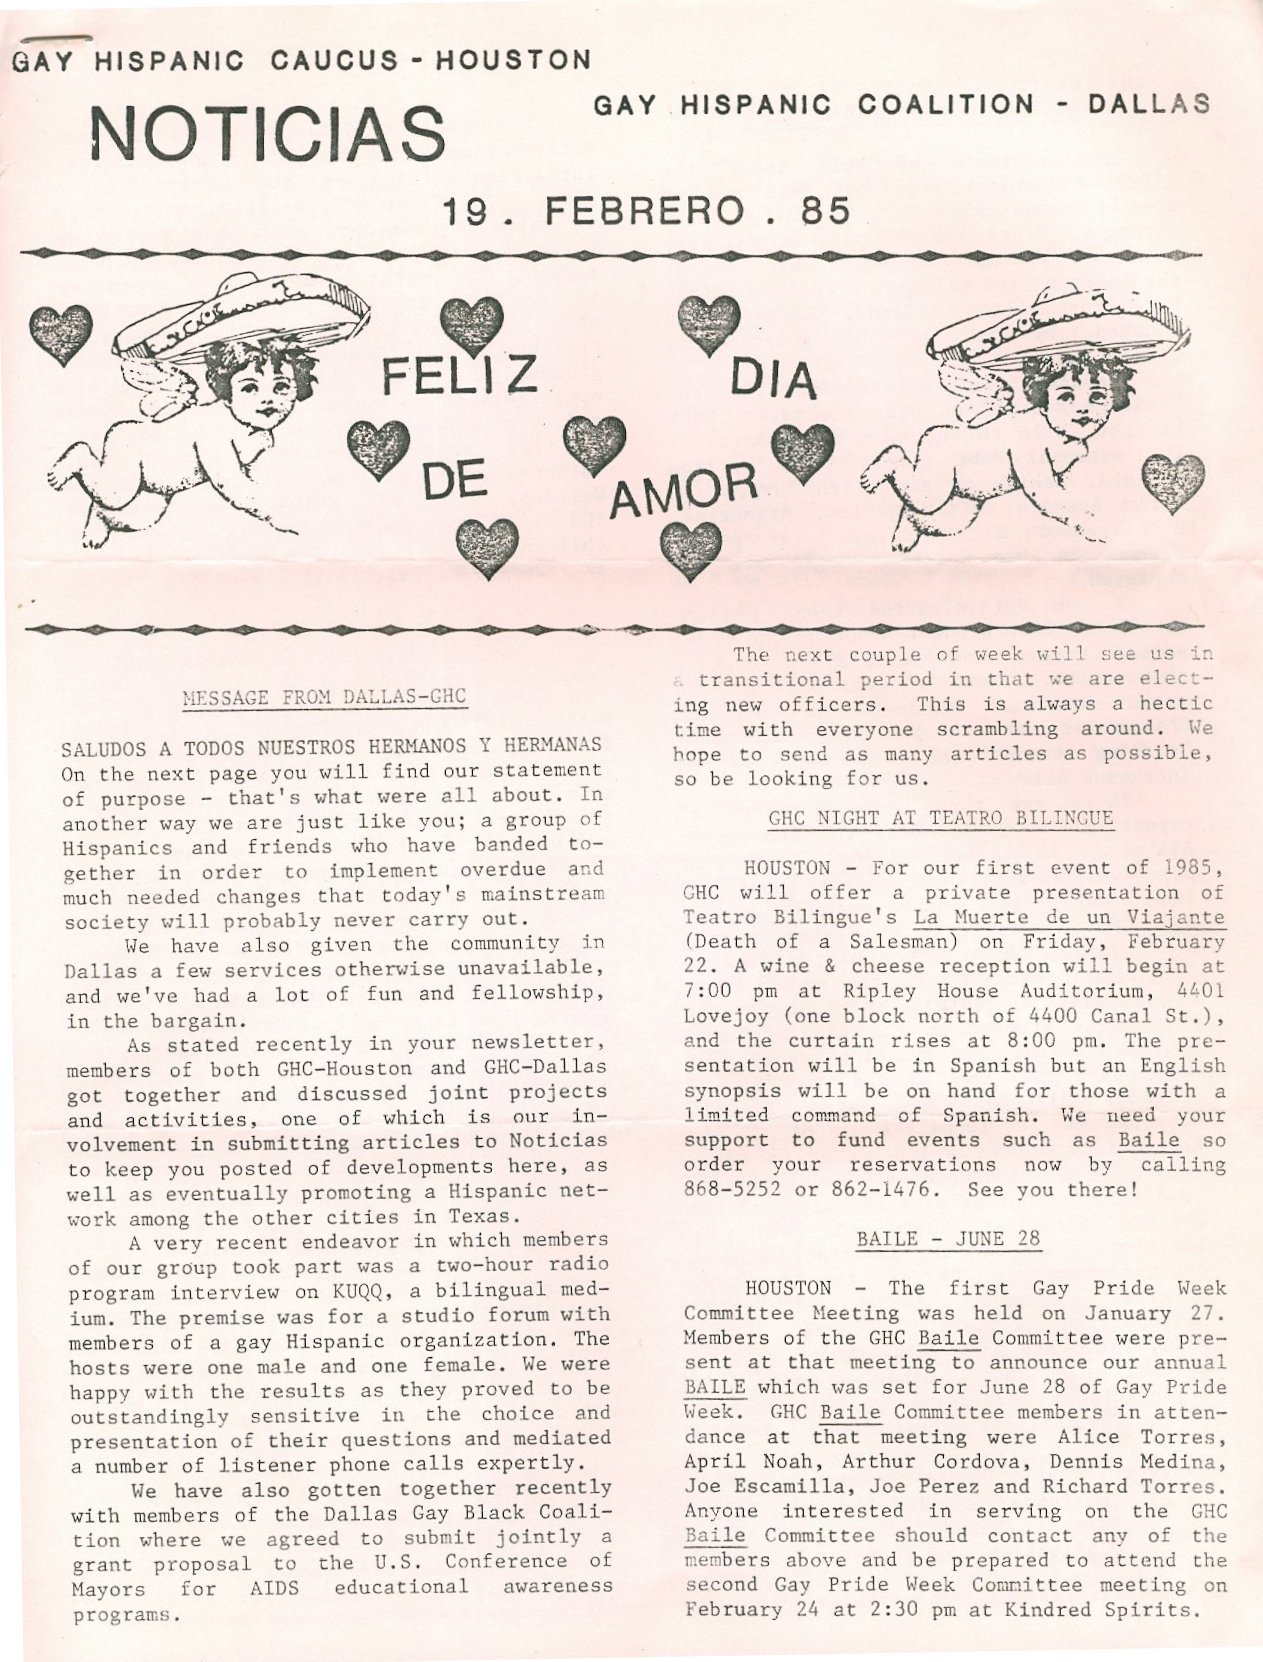 GAY HISPANIC CAUCUS - HOUSTON
GAY HISPANIC COALITION - DALLAS
NOTICIAS
19 . FEBRERO . 85
FELIZ DIA
DE AMOR
MESSAGE FROM DALLAS-GHC
SALUDOS A TODOS NUESTROS HERMANOS Y HERMANAS
On the next page you will find our statement
of purpose - that's what were all about. In
another way we are just like you; a group of
Hispanics and friends who have banded to-
gether in order to implement overdue and
much needed changes that today's mainstream
society will probably never carry out.
We have also given the community in
Dallas a few services otherwise unavailable,
and we've had a lot of fun and fellowship,
in the bargain.
As stated recently in your newsletter,
members of both GHC-Houston and GHC-Dallas
got together and discussed joint projects
and activities, one of which is our in-
volvement in submitting articles to Noticias
to keep you posted of developments here, as
well as eventually promoting a Hispanic net-
work among the other cities in Texas.
A very recent endeavor in which members
of our group took part was a two-hour radio
program interview on KUQQ, a bilingual med-
ium. The premise was for a studio forum with
members of a gay Hispanic organization. The
hosts were one male and one female. We were
happy with the results as they proved to be
outstandingly sensitive in the choice and
presentation of their questions and mediated
a number of listener phone calls expertly.
We have also gotten together recently
with members of the Dallas Gay Black Coali-
tion where we agreed to submit jointly a
grant proposal to the U.S. Conference of
Mayors for AIDS educational awareness
programs.
The next couple of week will see us in
a transitional period in that we are elect-
ing new officers. This is always a hectic
time with everyone scrambling around. We
hope to send as many articles as possible,
so be looking for us.
GHC NIGHT AT TEATRO BILINGUE
HOUSTON - For our first event of 1985,
GHC will offer a private presentation of
Teatro Bilingue's La Muerte de un Viajante
(Death of a Salesman) on Friday, February
22. A wine & cheese reception will begin at
7:00 pm at Ripley House Auditorium, 4401
Lovejoy (one block north of 4400 Canal St.),
and the curtain rises at 8:00 pm. The pre-
sentation will be in Spanish but an English
synopsis will be on hand for those with a
limited command of Spanish. We need your
support to fund events such as Baile so
order your reservations now by calling
868-5252 or 862-1476. See you there!
BAILE - JUNE 28
HOUSTON - The first Gay Pride Week
Committee Meeting was held on January 27.
Members of the GHC Baile Committee were pre-
sent at that meeting to announce our annual
BAILE which was set for June 28 of Gay Pride
Week. GHC Baile Committee members in atten-
dance at that meeting were Alice Torres,
April Noah, Arthur Cordova, Dennis Medina,
Joe Escamilla, Joe Perez and Richard Torres.
Anyone interested in serving on the GHC
Baile Committee should contact any of the
members above and be prepared to attend the
second Gay Pride Week Committee meeting on
February 24 at 2:30 pm at Kindred Spirits.